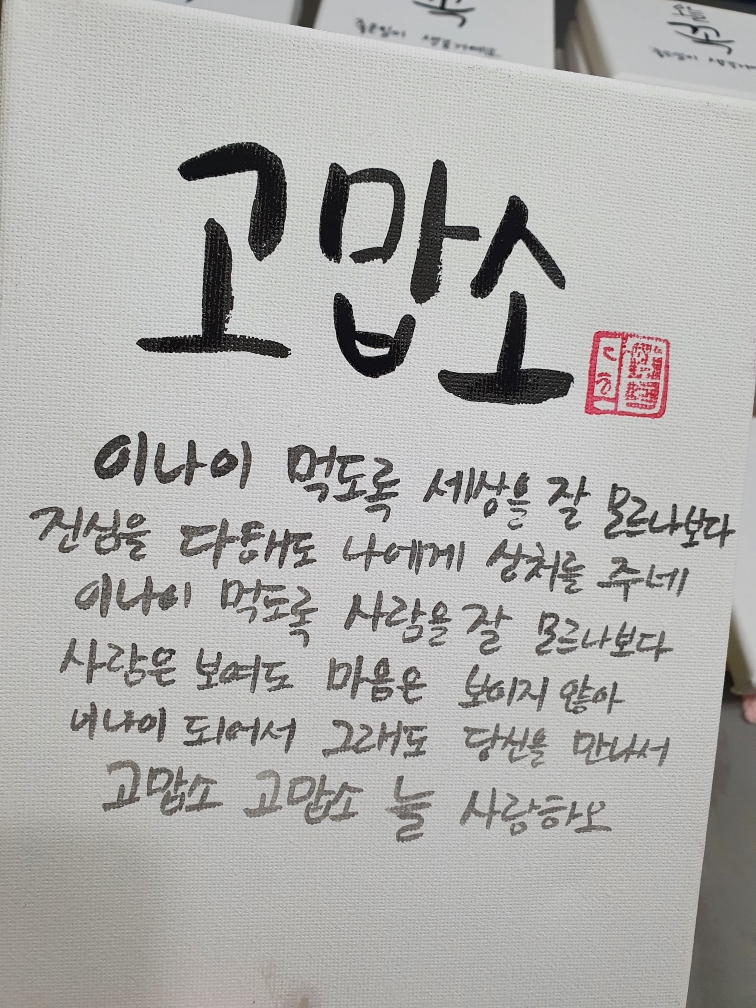 오늘
좋은일이 생길거예요
고맙소
이나이 먹도록 세상을 잘 모르나보다
진심을 다해도 나에게 상처를 주네
이나이 먹도록 사람을 잘 모르나보다
사람은 보여도 마음은 보이지 않아
이나이 되어서 그래도 당신을 만나서
고맙소 고맙소 늘 사랑하오